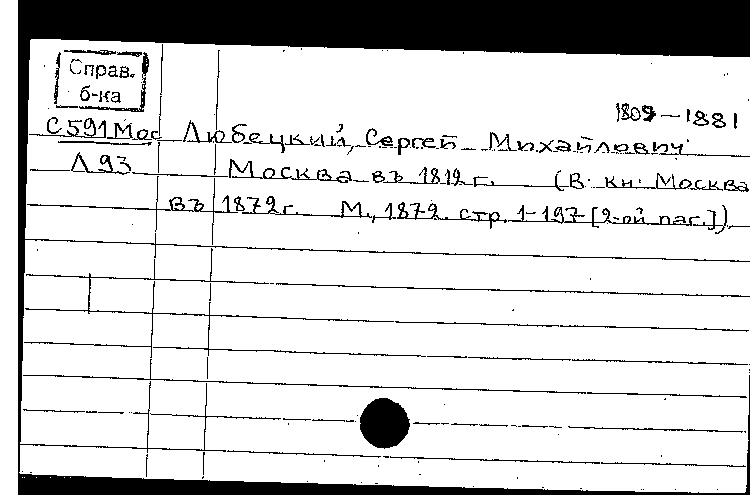 Справ.
б-ка
1809-1881
С591Мос Любецкий, Сергей Михайлович
Л93 Москва въ 1812 г. (В кн. Москва
въ 1872 г. М., 1872. стр. 1-197 [2-ой паг.])